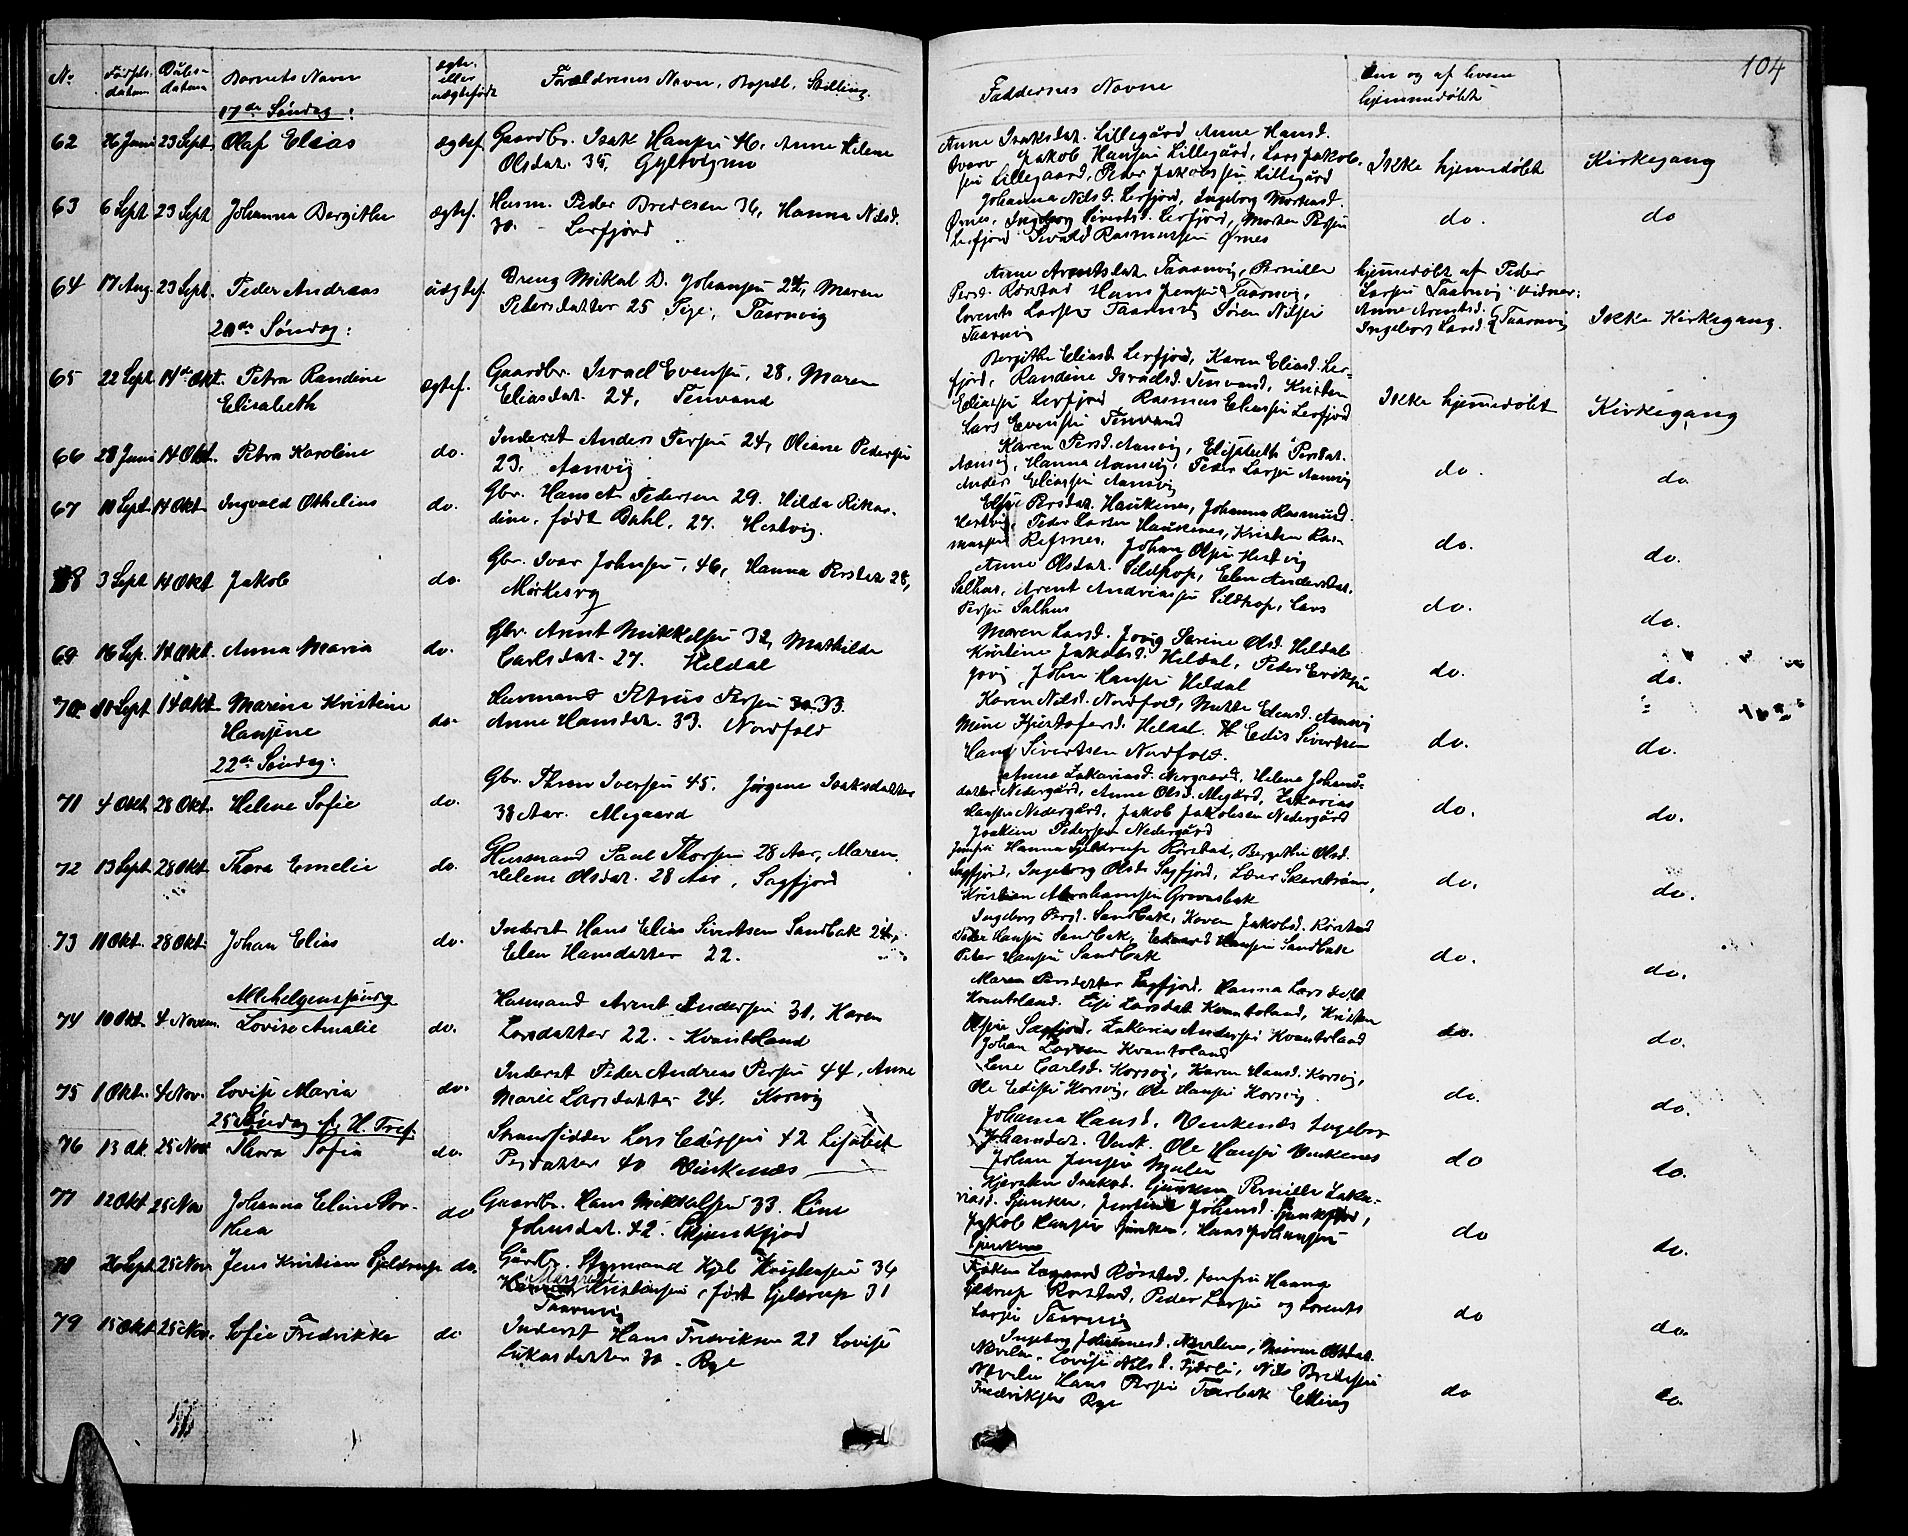 104
No Fødsels- datum Døbes- datum Barnets Navn ægte eller uægtefødt Forældrenes Navn, Bopæl, Stilling. Faddernes Navne Om og af hvem hjemmedøbt
17de Søndag:
62 26 Juni 23 Sept. Olaf Elias ægtef. Gaardbr. Isak Hansen 46, Anne Helene
Olsdat. 35,
Anne Isaksdat. Lillegård Anne Hansd.
Jakob Hansen Lillegård, Lars Jakob-
sen Lillegaard, Peder Jakobsen Lillegård
Ikke hjemmedøbt Kirkegang
63 6 Sept 23 Sept Johanna Bergithe ægtef. Husm. Peder Bredesen 36, Hanna Nilsd.
30. - Lerfjord
Johanna Nilsd. Lerfjord, Ingeborg Mortensd.
Ørnes, Ingeborg Sivertsd. Lerfjord, Morten Persen
Lerfjord Sivald Rasmussen Ørnes
do. do
64 17 Aug. 23 Sept. Peder Andreas uægtef. Dreng Mikal D. Johansen 24, Maren
Petersdatter 25 Pige, Taarnvig
Anne Arentsdat. Taarnvig, Pernille
Persd. Rørstad Hans Jensen Taarnvig,
Lorents Larsen Taarnvig Søren Nilsen
Taarnvig
hjemmedøbt af Peder
Larsen Taarnvig Vidner:
Anne Arentsd.
Ingeborg Larsd. Taarnvig
Ikke Kirkegang.
20de Søndag:
65 22 Sept. 14de Okt. Petra Randine
Elisabeth
ægtef. Gaardbr. Israel Evensen, 28, Maren
Eliasdat. 24, Tenvand
Bergithe Eliasd. Lerfjord, Karen Eliasd. Ler-
fjord, Randine Israelsd. Tenvand, Kristen
Eliassen Lerfjord Rasmus Eliassen Lerfjord
Lars Evensen Tenvand
Ikke hjemmedøbt Kirkegang
66 28 Juni 14 Okt. Petra Karoline do. Inderst Anders Persen 24, Oliane Pedersen
23. Aanvig
Karen Persd. Aanvig, Elisabeth Persdat.
Aanvig, Hanna Aanvig, Peder Larsen Aanvig
Anders Eliassen Aanvig
do. do.
67 10 Sept. 14 Okt. Ingvald Othelius do. Gbr. Hans A Pedersen 29. Hilda Rikar-
dine, født Dahl, 27. Hestvig.
Elsie Persdat. Haukenes, Johanna Rasmusd.
Hestvig, Peder Larsen Haukenes, Kristen Ras-
mussen Refsnes, Johan Olsen Hestvig
do. do.
68 3 Sept. 14 Okt Jakob do. Gbr. Ivar Johnsen, 46, Hanna Persdat 28,
Mørkesvg
Anne Olsdat. Sildhop, Elen Andersdat.
Salhus, Arent Andreassen Sildhop, Lars
Persen Salhus
do. do.
69 16 Sep. 14 Okt. Anna Maria do. Gbr. Arnt Mikkelsen 32, Mathilde
Carlsdat. 27. Heldal
Maren Larsd. Jovig Sarine Olsd. Heldal
Kristine Jakobsd. Heldal, Peder Eriksen
Jovig, Johan Hansen Heldal
do. do.
70 10 Sept 14 Okt. Marina Kristine
Hansine
do. Husmand Petrus Persen 33.
Anne Hansdat. 33. Nordfold
Karen Nilsd. Nordfold, Mette Edisd. Aanvig
Mine Kristofersd. Heldal. H Edis Sivertsen
Hans Sivertsen Nordfold.
do. do.
22de Søndag:
71 4 Okt. 28 Okt. Helene Sofie do. Gbr. Thron Iversen 45. Jørgine Isaksdatter
38 Aar. Megaard
Anne Zakariasd. Nergaard, Helene Johans-
datter Nedergård, Anne Olsd. Megård, Zakarias
Hansen Nedergård, Jakob Jakobsen Nedergård
Joakim Pedersen Nedergård
do. do.
72 13 Sept. 28 Okt. Thora Emelie do. Husmand Paul Thorsen 28 Aar, Maren
Helene Olsdat. 28 Aar, Sagfjord
Jomfru Hanna Gjeldrup Rørstad, Bergithe Olsd.
Sagfjord, Ingeborg Olsd. Sagfjord,
Kristian Abrahamsen
do. do.
73 11 Okt. 28 Okt. Johan Elias do. Inderst Hans Elias Sivertsen Sandbak 24,
Elen Hansdatter 22.
Ingeborg Persd. Sandbak, Karen Jakobsd. Rørstad
Peder Hansen Sandbak, Edvard Hansen Sandbak
Peter Hansen Sandbak
do. do.
Allehelgensøndag
74 10 Okt. 4 Novem. Lovise Amalie do. Husmand Arent Andersen 31, Karen
Larsdatter 22. - Kvantoland
Maren Larsdatter Sagfjord. Hanna Larsdatt
Kvantoland. Elsie Larsdat Kvantoland, Kristen
Olsen Sagfjord, Zakarias Andersen Kvantoland
Johan Larsen Kvantoland
do. do.
75 1 Okt. 4 Nov. Lovise Maria do. Inderst Peder Andreas Persen 44, Anne
Marie Larsdatter 24. Korsvig
Lene Carlsd. Korsvig, Karen Hansd. Korsvig,
Ole Edissen Korsvig, Ole Hansen Korsvig.
do. do.
25 Søndag f. H. Tref.
76 13 Ok. 25 Nov Thora Sofia do. Strandsidder Lars Edissen 42 Lisabet
Persdatter 40 Vinkenæs
Johanna Hansd. Vinkenæs Ingeborg
Johansdat. Ole Hansen Vinkenes
Johan Jensen
do do.
77 12 Okt 25 Nov Johanna Eline Do-
thea
do Gaardbr. Hans Mikkalsen 33. Line
Johnsdat. 42.
Kjersten Isaksd. Pernille Zaka-
riasd.
Jakob Hansen Hans Johansen
do do.
78 26 Sept. 25 Nov Jens Kristian Gjeldrup do. Gårdbr. Styrmand Kristensen 34
Margrete Kristensen, født Gjeldrup 31
Taarnvig
Frøken Rørstad, Jomfru Hanna
Gjeldrup Rørstad, Peder Larsen og Lorents
Larsen Taarnvig
do do.
79 15 Okt. 25 Nov. Sofie Fredrikke do Inderst Hans Fredriksen 21 Lovise
Lukasdatter 30 - Rye
Ingeborg Johannesd.
Lovise Nilsd. Nils Bredesen
Hans Persen
Fredriksen Rye
do do.